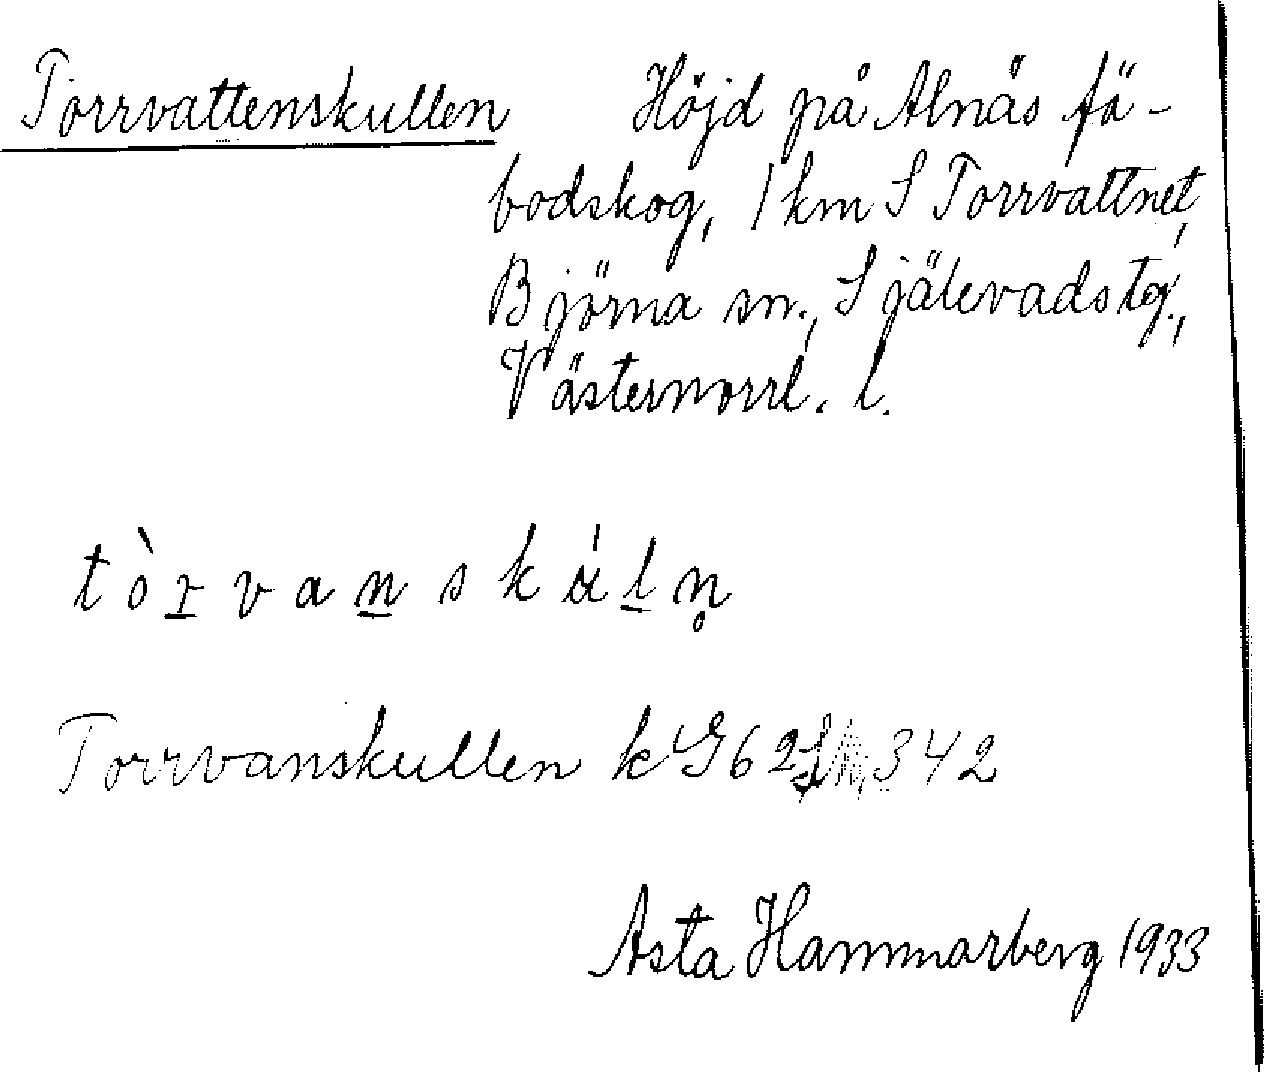 Torrvattenskullen Höjd på Alnäs fä-
bodskog, 1 km S Torrvattnet,
Björna sn., Själevads tg.,
Västernorrl. l.
tòr̲van̲skál̲n̥
Torrvanskullen k G 62 342
Asta Hammarberg 1933